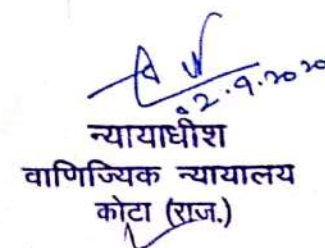 2.9.2020
न्यायाधीश
वाणिज्यिक न्यायालय
कोटा (राज.)